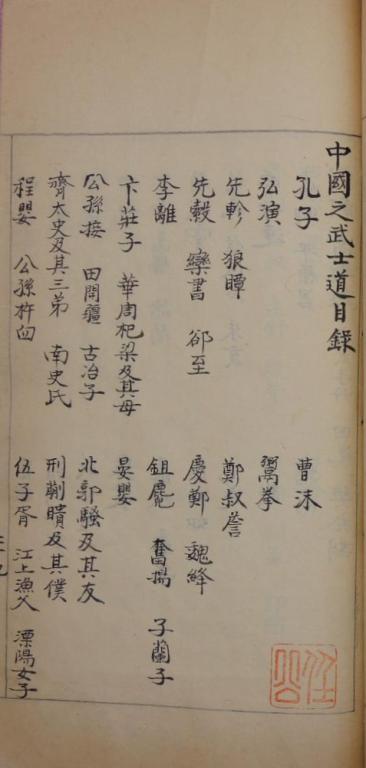 中國之武士道目錄
孔子 曹沫
弘演 鬻拳
先軫 狼瞫 鄭叔詹
先縠 欒書 郤至 慶鄭 魏絳
李離 鉏麑 奮揚 子蘭子
卞莊子 華周杞梁及其母 晏嬰
公孫接 田開疆 古冶子 北郭騷及其友
齊太史及其三第 南史氏 刑蒯瞶及其僕
程嬰 公孫杵臼 伍子胥 江上漁父 溧陽女子
任公